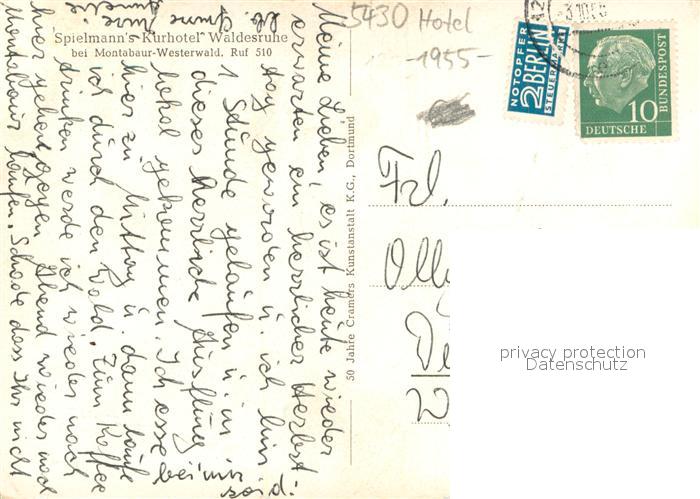 Spielmann's Kurhotel Waldesruhe
bei Montabaur-Westerwald. Ruf 510
5430 Hotel
-1955-
NOTOPFER
2 BERLIN
STEUERMARKE
10
DEUTSCHE
BUNDESPOST
50 Jahre Cramers Kunstanstalt K.G., Dortmund
Meine Lieben! es ist heute wieder
erwarten ein herrlicher Herbst-
tag geworden u. ich bin
1 Stunde gelaufen u. in
dieses herrliche Ausflugs-
lokal gekommen. Ich esse
hier zu Mittag u. dann laufe
ich durch den Wald. Zum Kaffee
trinken werde ich wieder nach
hier gehen gegen Abend wieder nach
Montabaur laufen. Schade dass Ihr nicht
bei mir
seid!
Frl.
Olly
privacy protection
Datenschutz